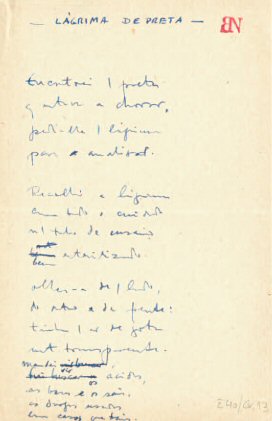 — LÁGRIMA DE PRETA —
BN
Encontrei 1 preta
q estava a chorar,
pedi-lhe 1 lágrima
para analisar.
Recolhi a lágrima
com todo o cuidado
n1 tubo de ensaio
bem esterilizado.
Olhei-a de 1 lado,
do outro e de frente:
tinha 1 ar de gota
mt transparente.
mandei vir os ácidos,
as bases e os sais,
as drogas usadas
em casos que tais.